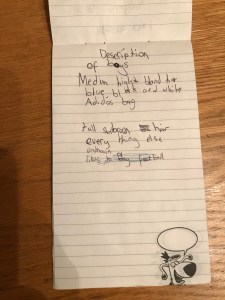 Description
of boys
Medim hight blond hair
blue black and white
Adidas bag
full hair
every thing else
unknown
likes to play football